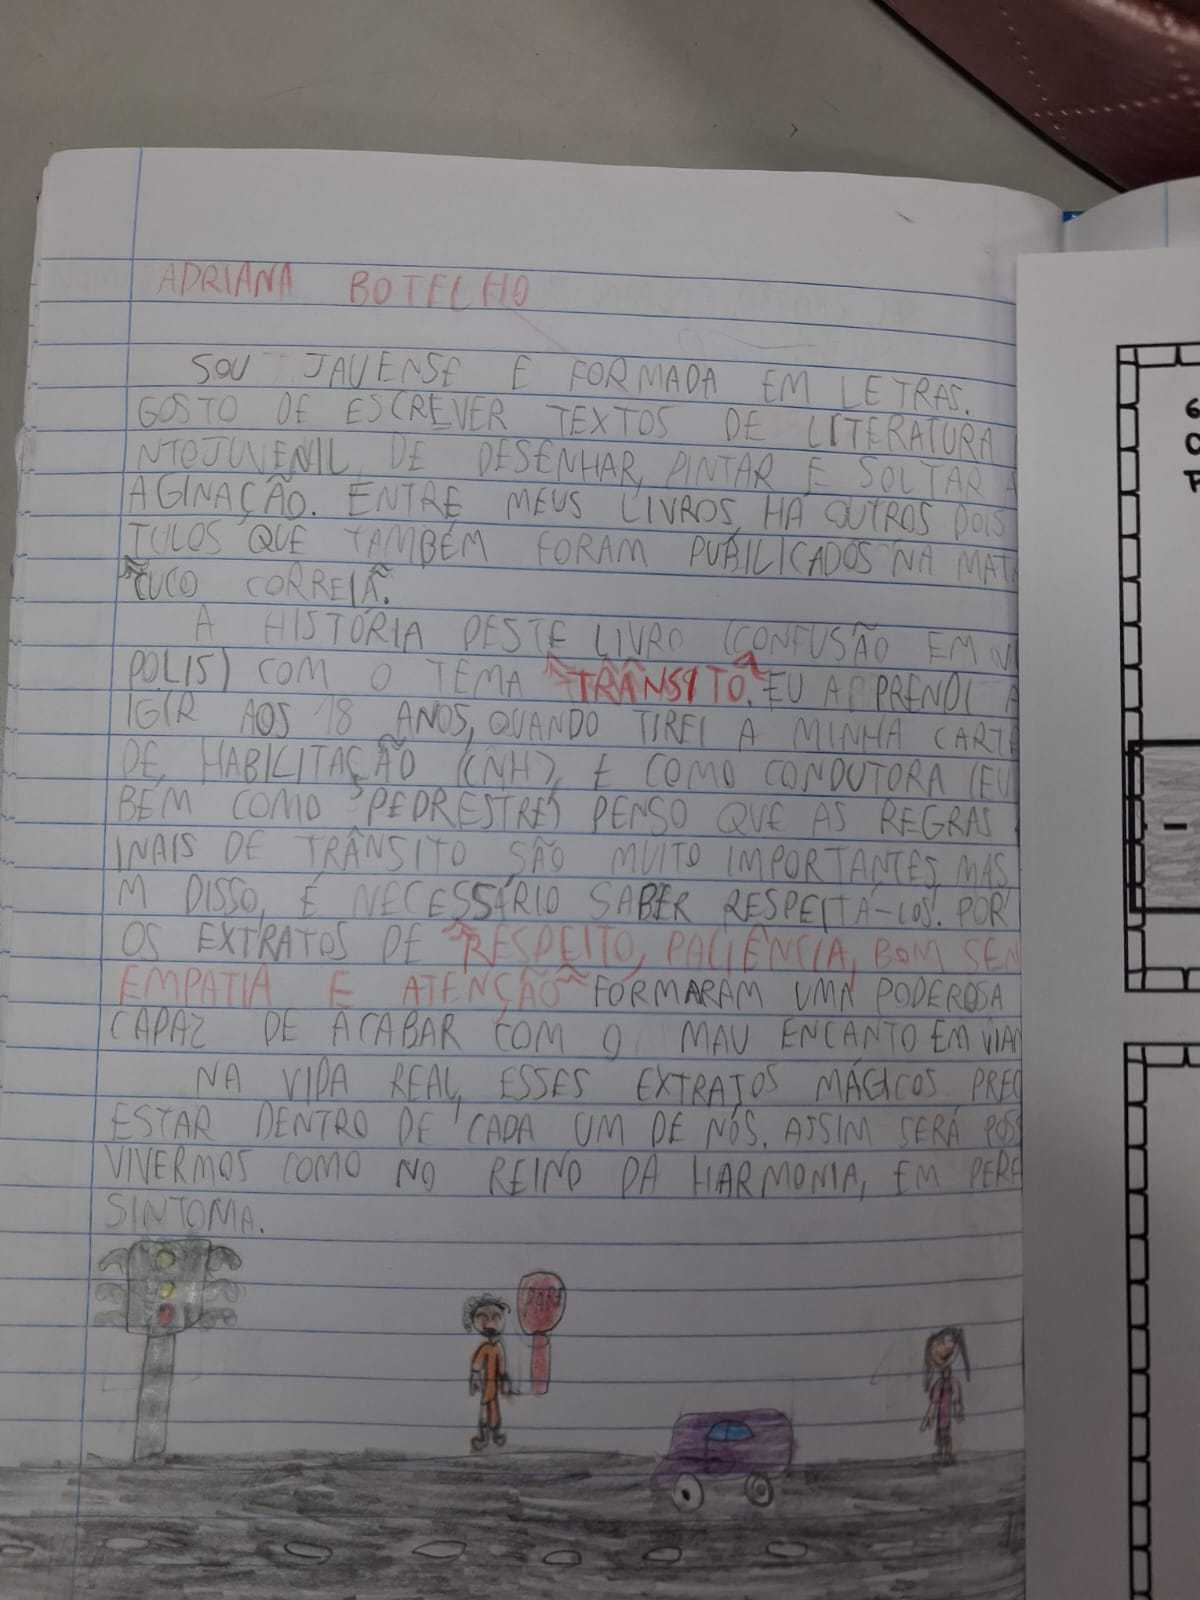 ADRIANA BOTELHO
SOU JAUENSE E FORMADA EM LETRAS.
GOSTO DE ESCREVER TEXTOS DE LITERATURA
NTOJUVENIL, DE DESENHAR, PINTAR E SOLTAR A
AGINAÇÃO. ENTRE MEUS LIVROS, HA OUTROS DOIS
TULOS QUE TAMBÉM FORAM PUBILICADOS NA MAT
CUCO CORREIA.
A HISTÓRIA DESTE LIVRO (CONFUSÃO EM V
POLIS) COM O TEMA "TRÂNSITO". EU APRENDI A
IGIR AOS 18 ANOS, QUANDO TIREI A MINHA CART
DE HABILITAÇÃO (CNH), E COMO CONDUTORA (EU
BÉM COMO PEDRESTRE) PENSO QUE AS REGRAS
INAIS DE TRÂNSITO SÃO MUITO IMPORTANTES, MAS,
M DISSO, É NECESSÁRIO SABER RESPEITÁ-LOS. POR
OS EXTRATOS DE "RESPEITO, PACIÊNCIA, BOM SEN
EMPATIA E ATENÇÃO" FORMARAM UMA PODEROSA
CAPAZ DE ACABAR COM O MAU ENCANTO EM VIAN
NA VIDA REAL, ESSES EXTRATOS MÁGICOS PREC
ESTAR DENTRO DE CADA UM DE NÓS. ASSIM SERÁ POSS
VIVERMOS COMO NO REINO DA HARMONIA, EM PERF
SINTOMA.
PARE